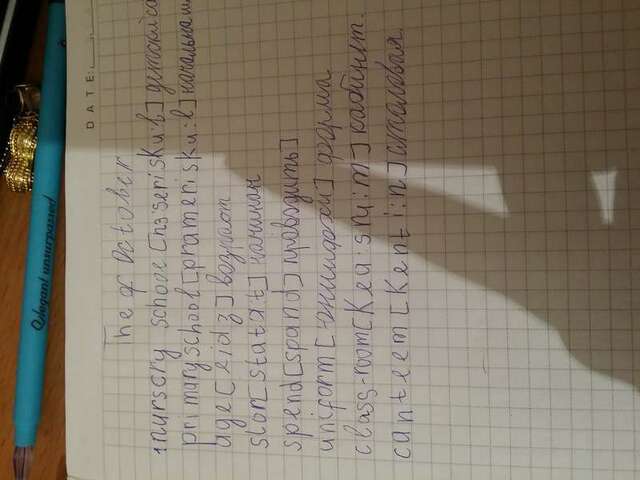 Elegant unsurpassed
DATE:
The of October
1nursery school [nɜ:seri sku:l] детский са
primary school [prameri sku:l] начальна
age [eidʒ] возраст
stor [statat] начинан
spend [spand] проводить]
uniform форма
class-room [Klea:sru:m] кабинет.
canteem [Kenti:n] столовая.